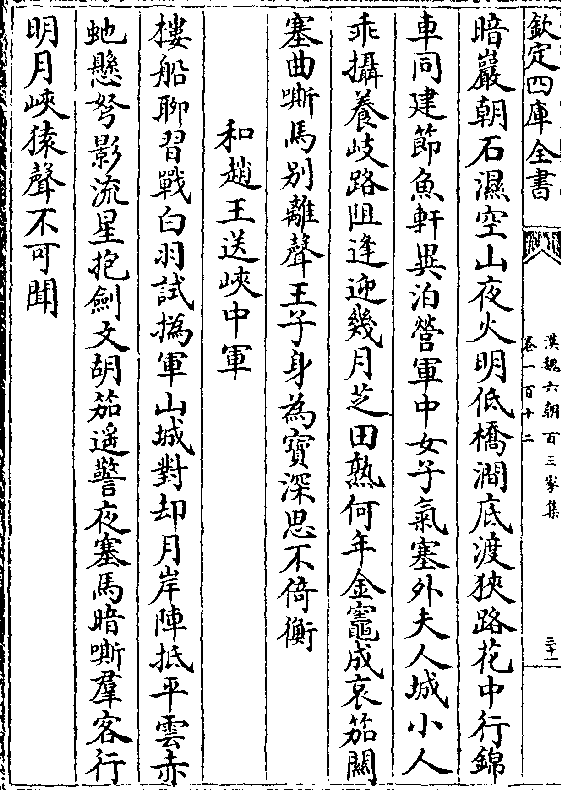 欽定四庫全書
漢魏六朝百三家集
卷一百十二
三十一
暗巖朝石濕空山夜火明低橋澗底渡狹路花中行錦
車同建節魚軒異泊營軍中女子氣塞外夫人城小人
乖攝養岐路阻逢迎幾月芝田熟何年金竈成哀笳關
塞曲嘶馬別離聲王子身為寶深思不倚衡
和趙王送峽中軍
樓船聊習戰白羽試撝軍山城對却月岸陣抵平雲赤
虵懸弩影流星抱劍文胡笳遥警夜塞馬暗嘶羣客行
明月峽猿聲不可聞